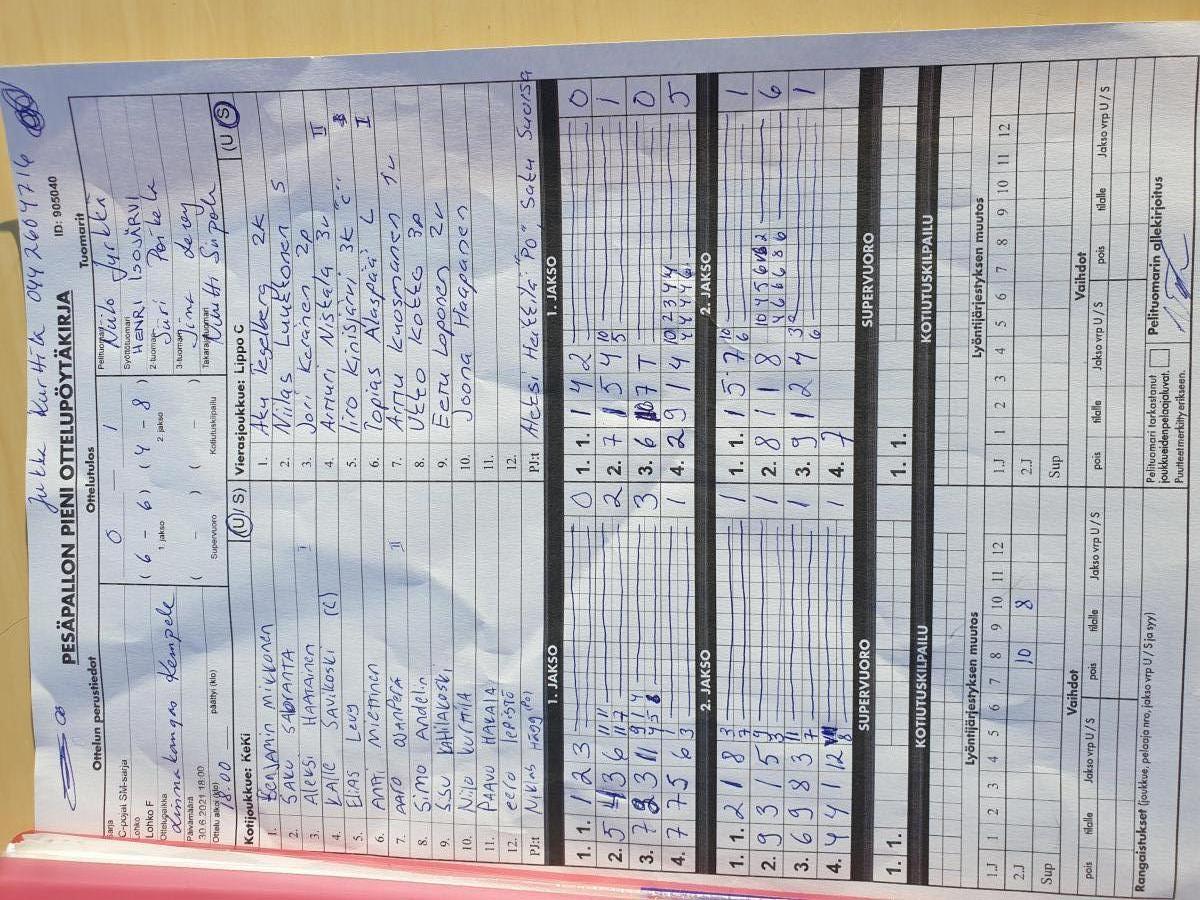 Jukka Kurttila 0442604716
PESÄPALLON PIENI OTTELUPÖYTÄKIRJA
ID: 905040
Ottelun perustiedot
Sarja
C-pojat SM-sarja
Lohko
Lohko F
Ottelupaikka
Linnakangas Kempele
Päivämäärä
30.6.2021 18:00
Ottelu alkoi (klo)
18.00
päättyi (klo)
Ottelutulos
0 – 1
( 6 – 6 ) ( 4 – 8 )
1. jakso 2. jakso
( – ) ( – )
Supervuoro Kotiutuskilpailu
Tuomarit
Pelituomari
Niilo Jurkka
Syöttötuomari
HENRI ISOJÄRVI
2-tuomari
3-tuomari
Takarajatuomari
Kotijoukkue: KeKi (U / S)
1. Benjamin Mikkonen
2. SAKU
3. Aleksi HAATAINEN I
4. KALLE SAVIKOSKI (C)
5. Elias Levy
6. Miettinen
7. AARO II
8. Simo Andelin
9. SSU
10. Nilo Kurttila
11. PAAVO HAKALA
12. eero lepistö
PJ:t Niklas Hägg (PO)
Vierasjoukkue: Lippo C (U / S)
1. Aku Tegelberg 2K
2. Niilas Luukkonen S
3. Jori Keränen 2p
4. Armuri Niskala 3v II
5. Iiro Kinisjärvi 3K "C"
6. Topias Alaspää L I
7. Arttu Kuosmanen 1v
8. Ukko Kokko 3p
9. Eetu Loponen 2v
10. Joona Haapanen
11.
12.
PJ:t Aleksi Hettula "PO", Satu Suorsa
1. JAKSO
1. 1. 1 2 3 0
2. 5 3 6 11 11 7 2
3. 7 3 11 3
4. 7 7 5 6 1 3 1
1. JAKSO
1. 1. 1 4 2 0
2. 7 1 5 4 10 5 1
3. 6 7 T 0
4. 2 9 1 4 5
2. JAKSO
1. 1. 2 1 8 3 7 1
2. 9 3 1 5 9 3 1
3. 6 9 8 3 11 7 1
4. 4 4 1 12 8 1
2. JAKSO
1. 1. 1 5 7 10 6 1
2. 8 1 1 8 6
3. 9 1 2 4 1
4. 7
SUPERVUORO
1. 1.
SUPERVUORO
1. 1.
KOTIUTUSKILPAILU
KOTIUTUSKILPAILU
Lyöntijärjestyksen muutos
1.J 1 2 3 4 5 6 7 8 9 10 11 12
2.J 10 8
Sup
Lyöntijärjestyksen muutos
1.J 1 2 3 4 5 6 7 8 9 10 11 12
2.J
Sup
Vaihdot
pois tilalle Jakso vrp U / S pois tilalle Jakso vrp U / S
Vaihdot
pois tilalle Jakso vrp U / S pois tilalle Jakso vrp U / S
Rangaistukset (joukkue, pelaaja nro, jakso vrp U / S ja syy)
Pelituomari tarkastanut
joukkueidenpelaajaluvat.
Puutteetmerkittyerikseen.
Pelituomarin allekirjoitus